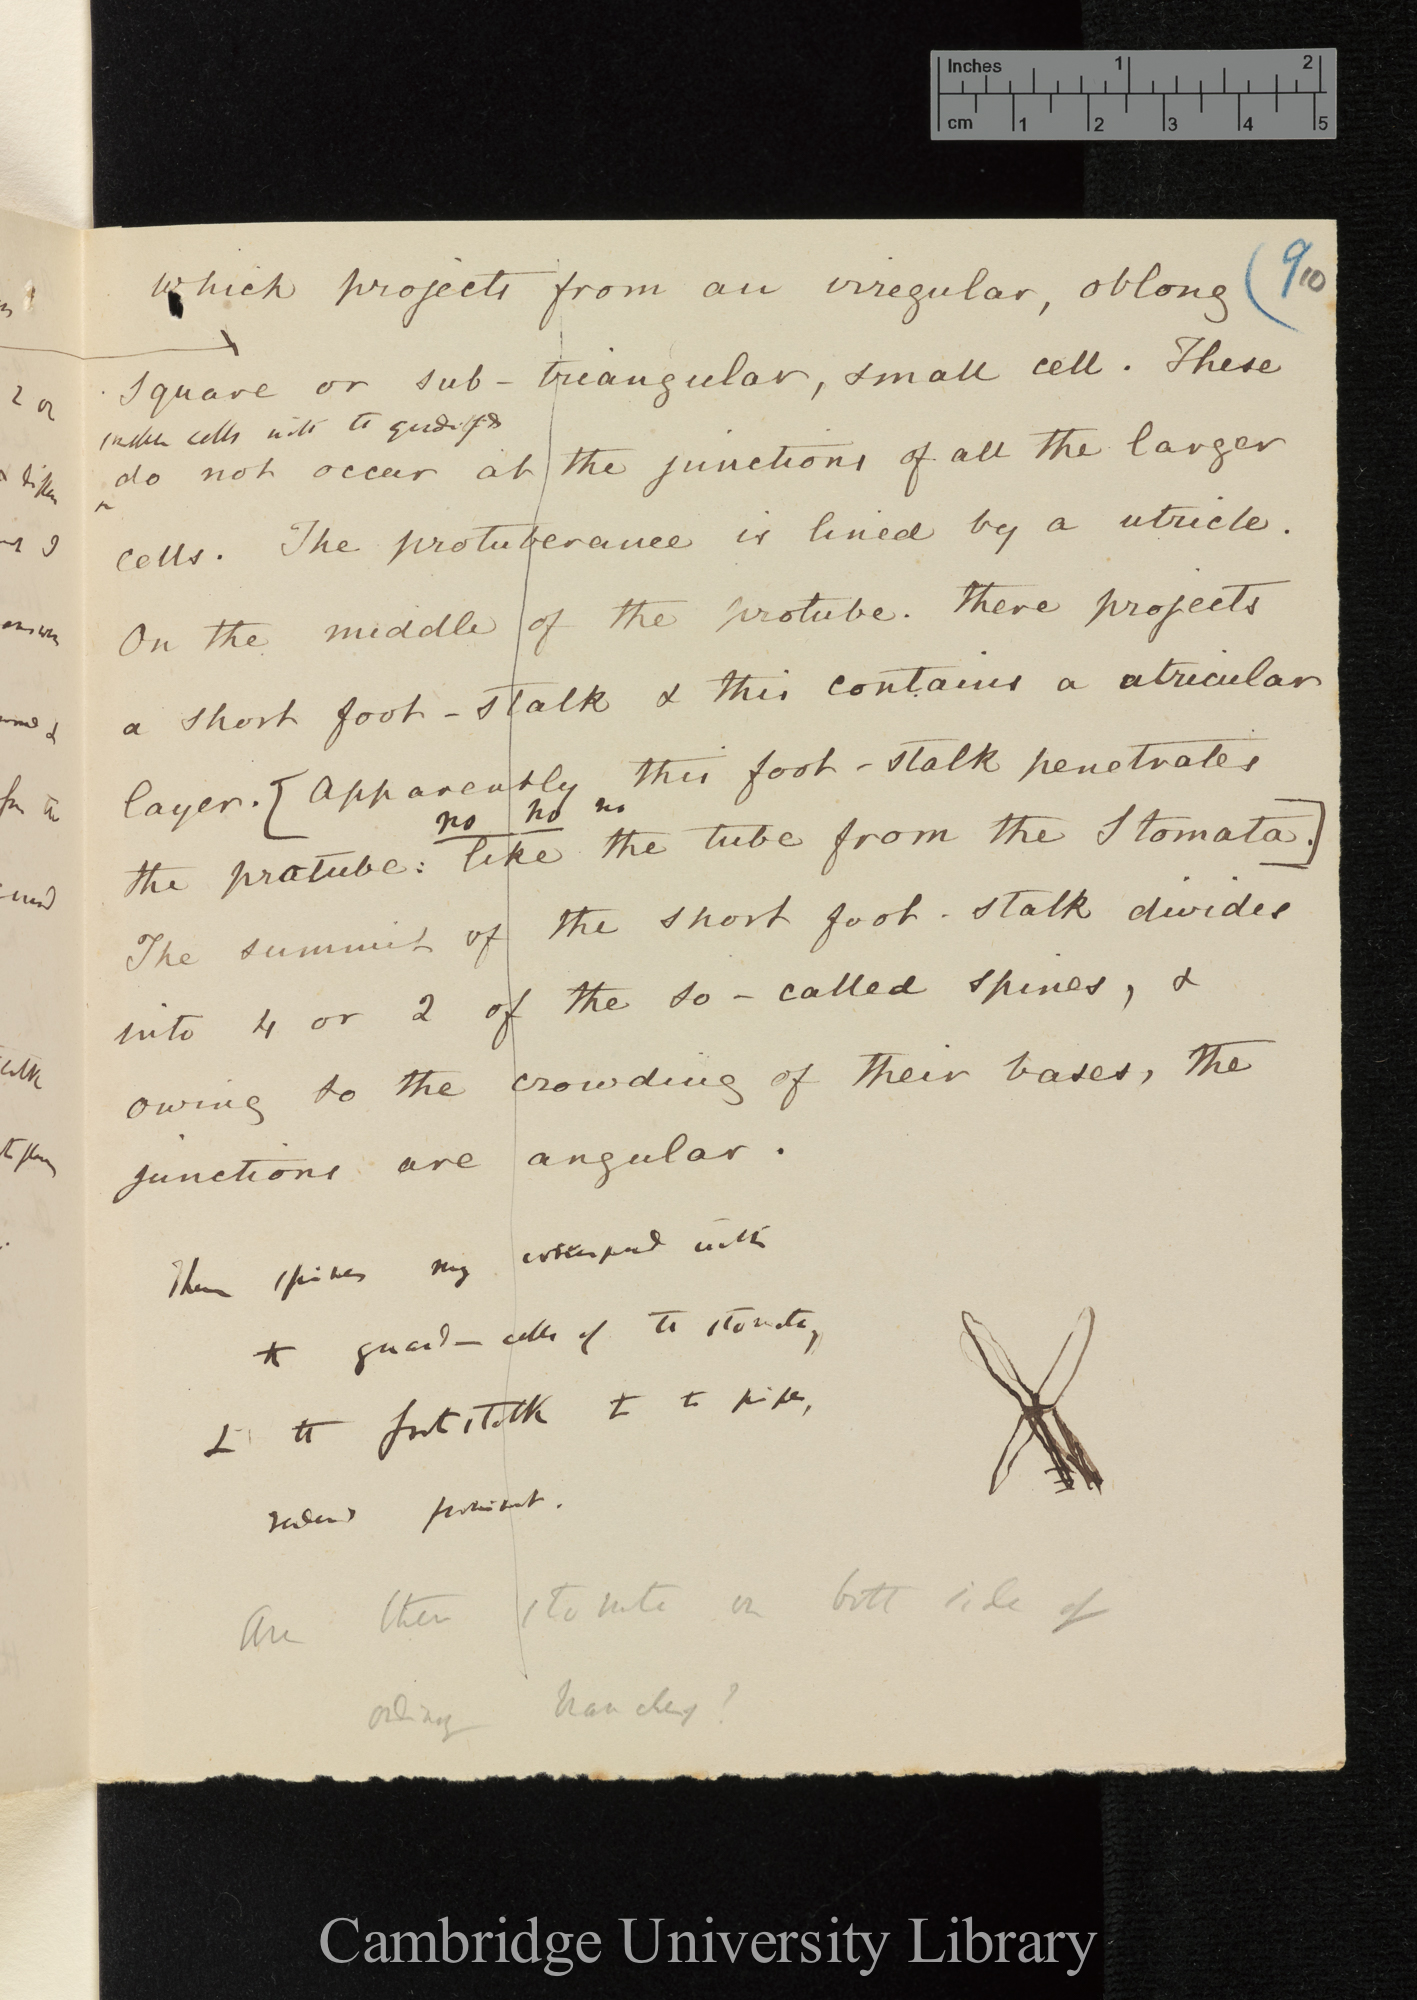 Inches 1 2
cm 1 2 3 4 5
(9 10
which projects from an irregular, oblong
square or sub-triangular, small cell. These
smaller cells with the
do not occur at the junctions of all the larger
cells. The protuberance is lined by a utricle.
On the middle of the protube. there projects
a short foot-stalk & this contains a utricular
layer. [Apparently this foot-stalk penetrates
no no no
the protube: like the tube from the Stomata.]
The summit of the short foot-stalk divides
into 4 or 2 of the so-called spines, &
owing to the crowding of their bases, the
junctions are angular.
These spines may correspond with
the guard-cells of the stomata,
& the footstalk to the pipe,
rendered prominent.
Are there stomata on both side of
ordinary branches?
2 or
Cambridge University Library